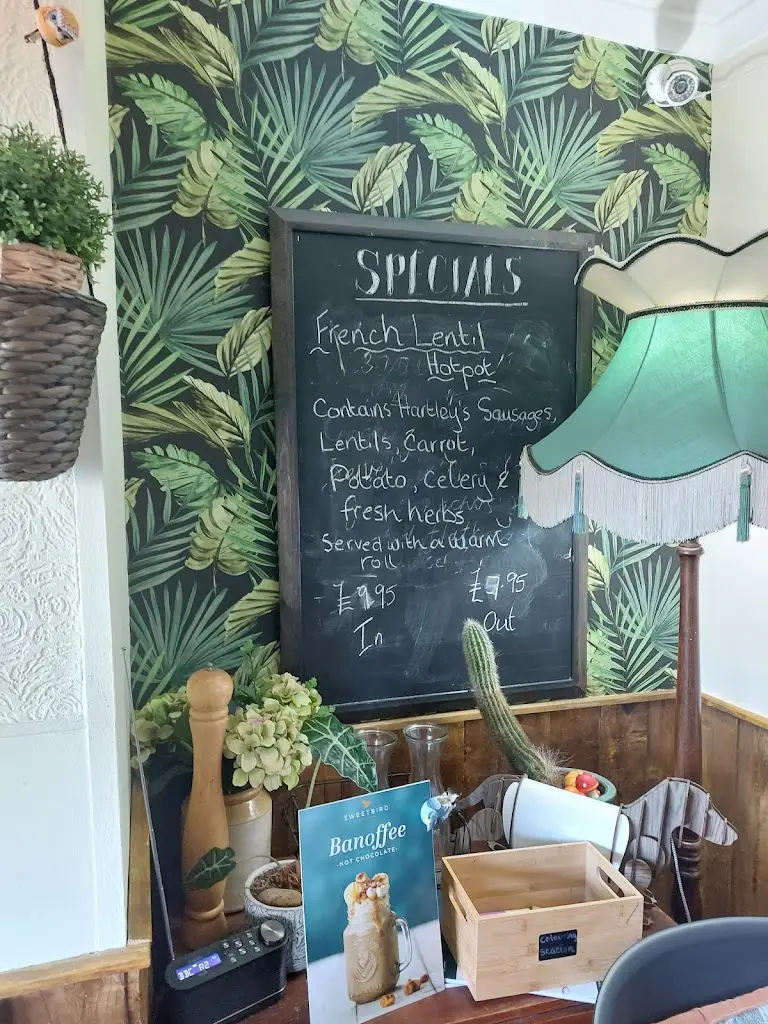 SPECIALS
French Lentil
Hotpot
Contains Hartley's Sausages,
Lentils, Carrot,
Potato, Celery &
fresh herbs
Served with a warm
roll
£9.95 £7.95
In Out
SWEETBIRD
Banoffee
-HOT CHOCOLATE-
Colouring
Station